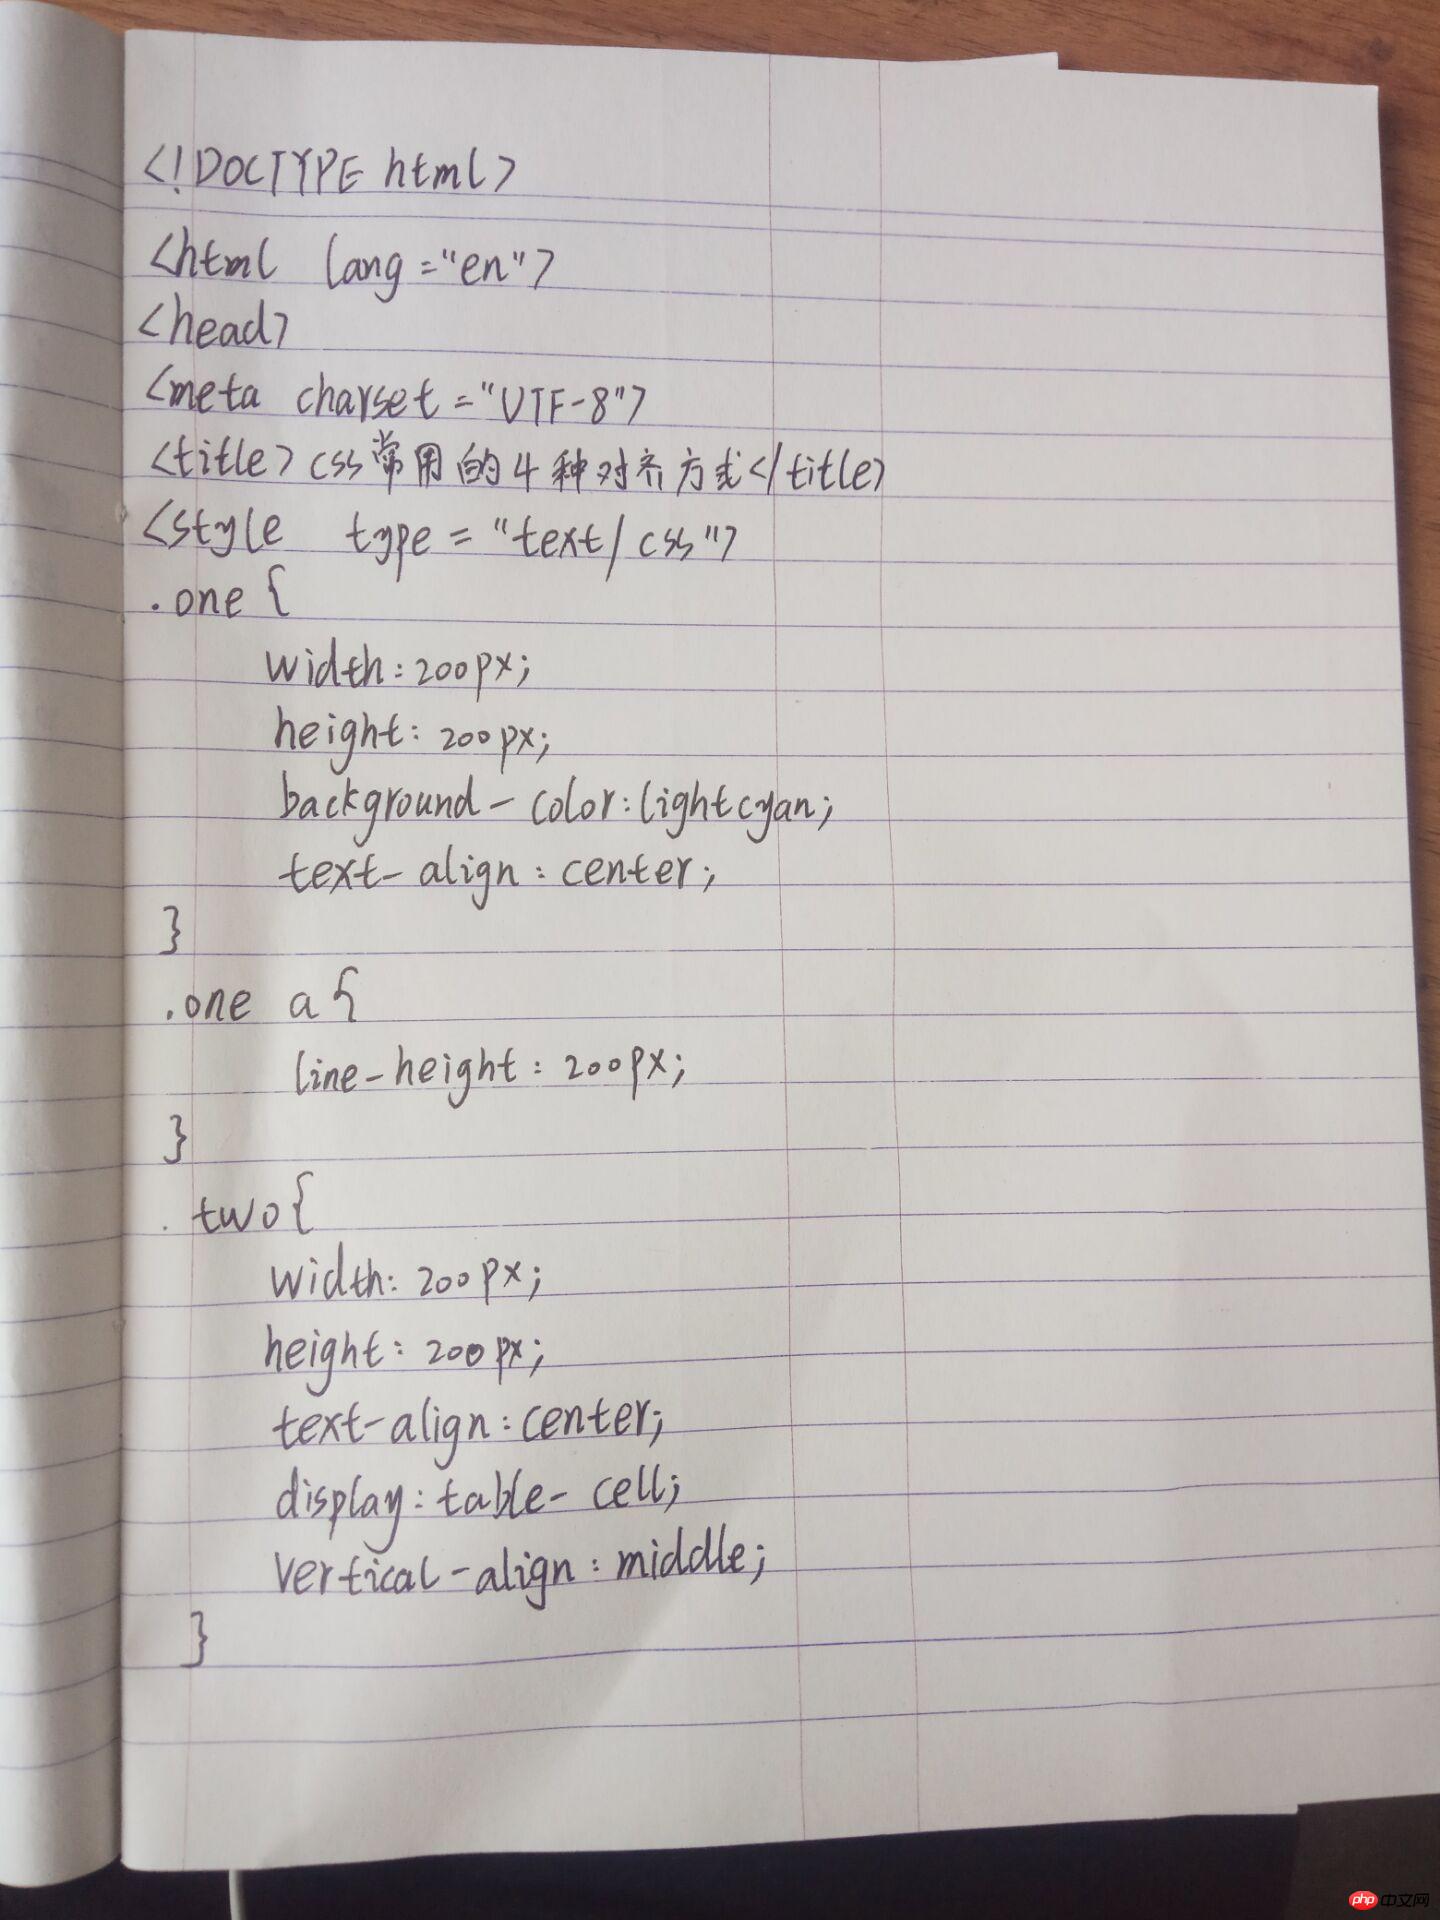 <!DOCTYPE html>
<html lang="en">
<head>
<meta charset="UTF-8">
<title>css常用的4种对齐方式</title>
<style type="text/css">
.one{
width:200px;
height:200px;
background-color:lightcyan;
text-align:center;
}
.one a{
line-height:200px;
}
.two{
width:200px;
height:200px;
text-align:center;
display:table-cell;
vertical-align:middle;
}
php中文网